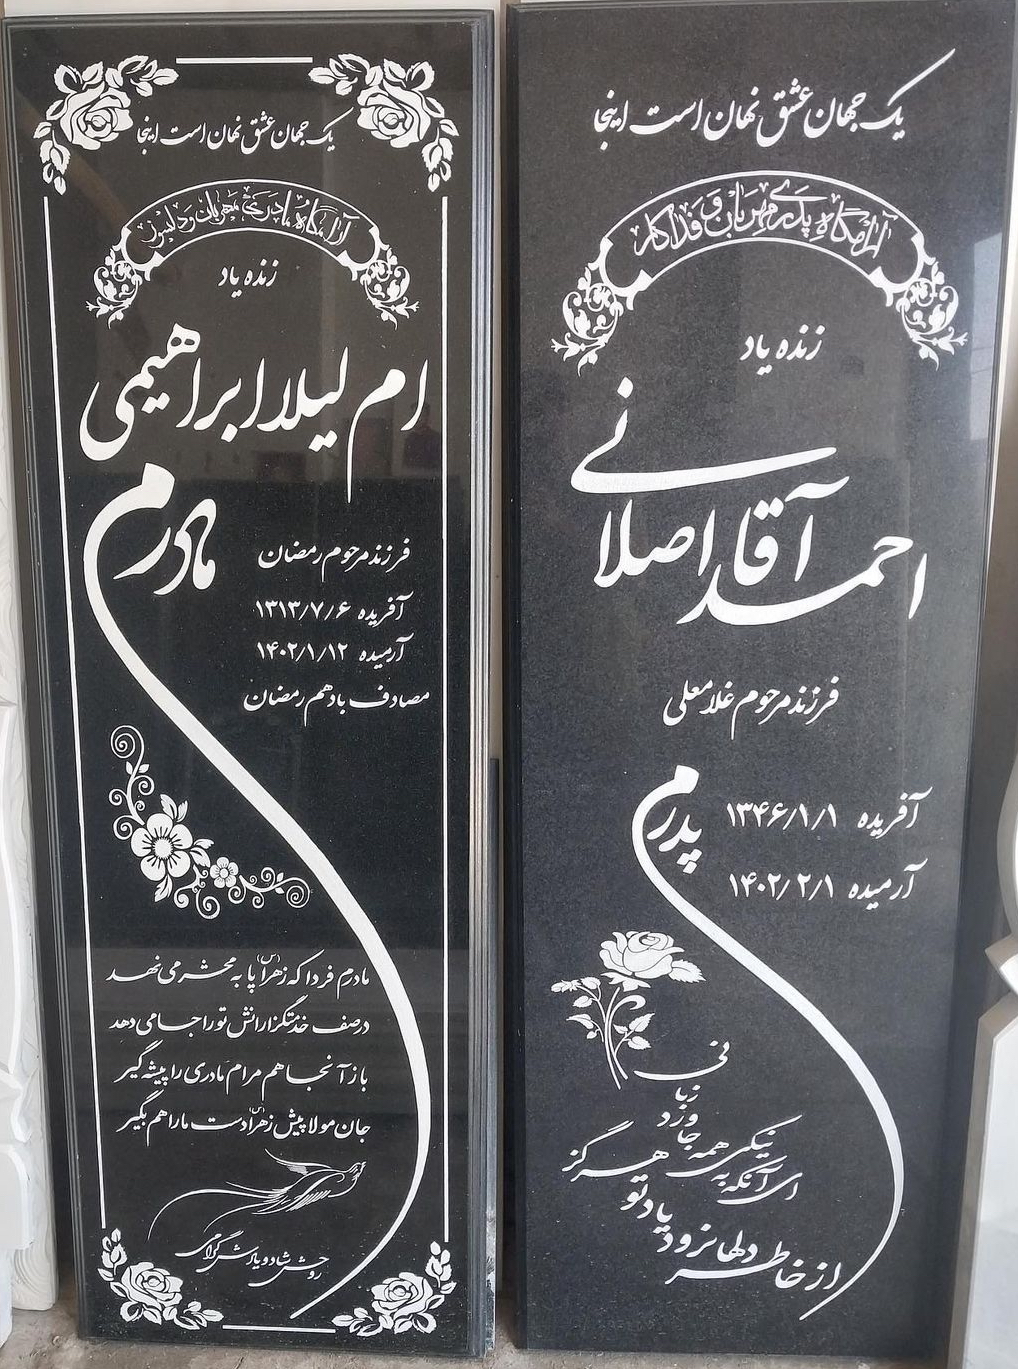 یک جهان عشق نهان است اینجا
آرامگاه پدری مهربان و فداکار
زنده یاد
احمد آقا اصلانی
فرزند مرحوم غلامعلی
پدرم
آفریده ۱۳۴۶/۱/۱
آرمیده ۱۴۰۲/۲/۱
ای آنکه به نیکی همه جا ورد زبانی
هرگز نرود یاد تو از خاطر دلها
یک جهان عشق نهان است اینجا
آرامگاه مادری مهربان و دلسوز
زنده یاد
ام لیلا ابراهیمی
مادرم
فرزند مرحوم رمضان
آفریده ۱۳۱۳/۷/۶
آرمیده ۱۴۰۲/۱/۱۲
مصادف با دهم رمضان
مادرم فردا که زهرا(س) پا به محشر می نهد
در صف خدمتگزارانش تو را جا می دهد
باز آنجا هم مرام مادری را پیشه گیر
جان مولا پیش زهرا(س) دست ما را هم بگیر
روحش شاد و یادش گرامی